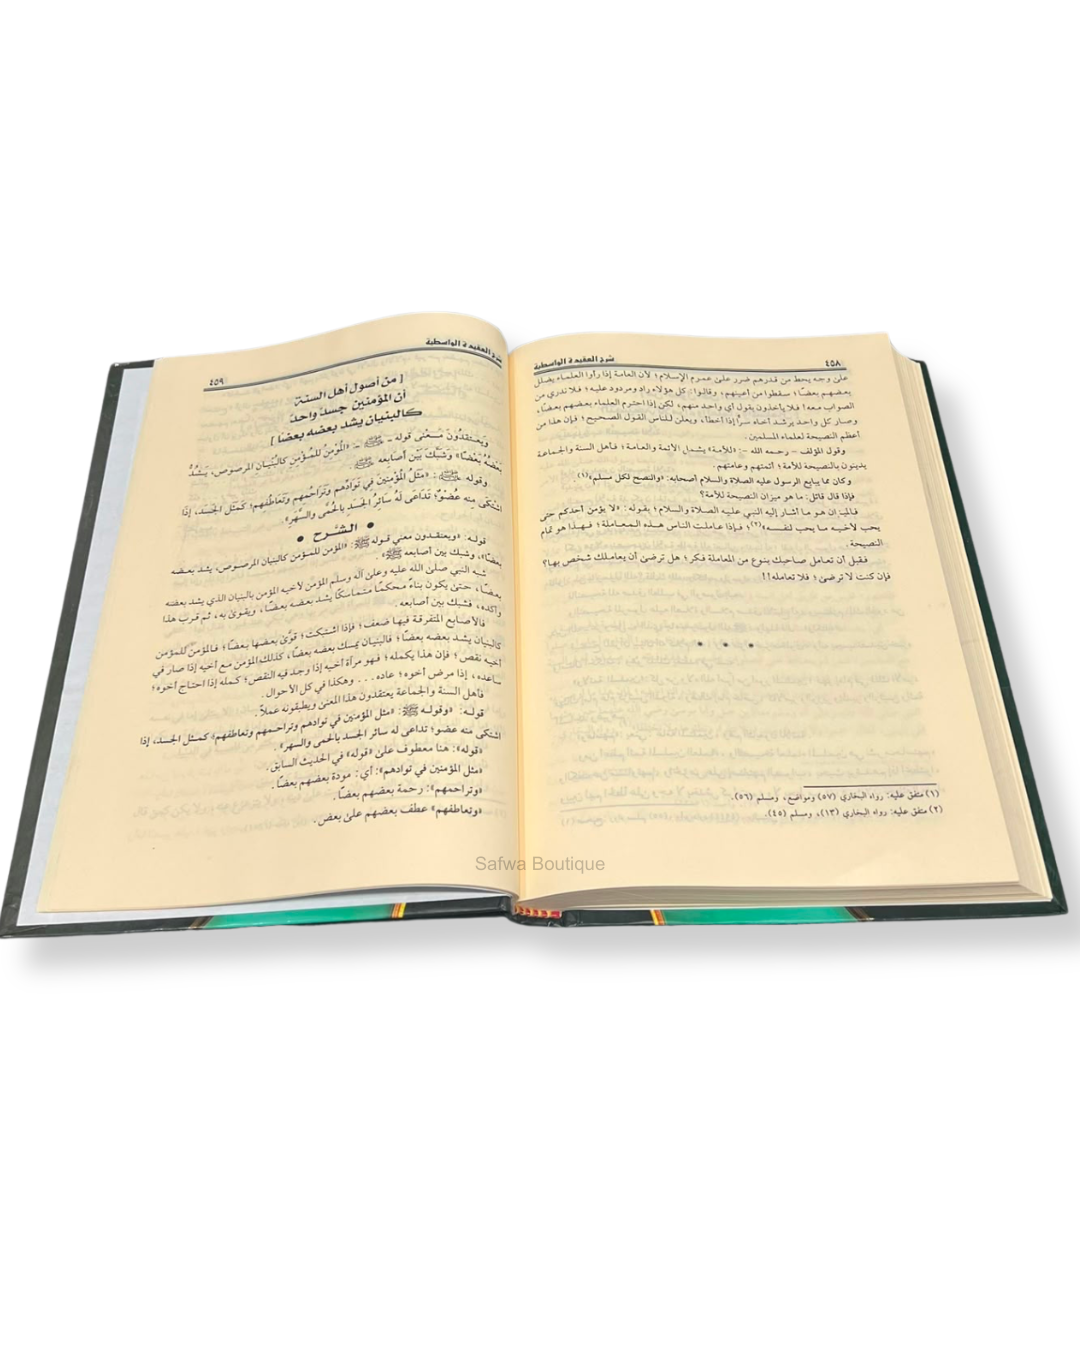 ٤٥٨
شرح العقيدة الواسطية
على وجه يحط من قدرهم ضرر على عموم الإسلام؛ لأن العامة إذا رأوا العلماء يضلل
بعضهم بعضًا؛ سقطوا من أعينهم، وقالوا: كل هؤلاء راد ومردود عليه؛ فلا ندري من
الصواب معه! فلا يأخذون بقول أي واحد منهم، لكن إذا احترم العلماء بعضهم بعضًا،
وصار كل واحد يرشد أخاه سرًا إذا أخطأ، ويعلن للناس القول الصحيح؛ فإن هذا من
أعظم النصيحة لعلماء المسلمين.
وقول المؤلف - رحمه الله -: «للأمة» يشمل الأئمة والعامة؛ فأهل السنة والجماعة
يدينون بالنصيحة للأمة؛ أئمتهم وعامتهم.
وكان مما يبايع الرسول عليه الصلاة والسلام أصحابه: «والنصح لكل مسلم»(١).
فإذا قال قائل: ما هو ميزان النصيحة للأمة؟
فالميزان هو ما أشار إليه النبي عليه الصلاة والسلام؛ بقوله: «لا يؤمن أحدكم حتى
يحب لأخيه ما يحب لنفسه»(٢)؛ فإذا عاملت الناس هذه المعاملة؛ فهذا هو تمام
النصيحة.
فقبل أن تعامل صاحبك بنوع من المعاملة فكر؛ هل ترضى أن يعاملك شخص بها؟
فإن كنت لا ترضى؛ فلا تعامله!!
(١) متفق عليه: رواه البخاري (٥٧) ومواضع، ومسلم (٥٦).
(٢) متفق عليه: رواه البخاري (١٣)، ومسلم (٤٥).
شرح العقيدة الواسطية
٤٥٩
[ من أصول أهل السنة
أن المؤمنين جسدٌ واحدٌ
كالبنيان يشد بعضه بعضًا ]
ويَعتقِدُونَ مَعْنى قوله - ﷺ -: «الْمُؤمِنُ للمُؤمِنِ كالبُنيانِ المرصوصِ، يَشُدُّ
بَعْضُهُ بَعْضًا» وَشَبَّكَ بَيْنَ أصابِعِه ﷺ.
وقوله ﷺ: «مَثَلُ الْمُؤمِنين في تَوَادِّهم وتَراحُمِهم وتعاطُفِهم؛ كمَثَلِ الجَسَدِ، إذا
اشْتَكَى مِنه عُضوٌ؛ تَدَاعَى لهُ سائِرُ الجَسَدِ بِالحُمَّى والسَّهَرِ».
• الشَّرح •
قوله: «ويعتقدون معنى قوله ﷺ: «المؤمن للمؤمن كالبنيان المرصوص، يشد بعضه
بعضًا»، وشبك بين أصابعه ﷺ».
شبه النبي صلى الله عليه وعلى آله وسلم المؤمن لأخيه المؤمن بالبنيان الذي يشد بعضه
بعضًا، حتى يكون بناءً محكمًا متماسكًا يشد بعضه بعضًا، ويقوى به، ثم قرب هذا
وأكده، فشبك بين أصابعه.
فالأصابع المتفرقة فيها ضعف؛ فإذا اشتبكت؛ قوَّى بعضها بعضًا؛ فالمؤمن للمؤمن
كالبنيان يشد بعضه بعضًا؛ فالبنيان يمسك بعضه بعضًا، كذلك المؤمن مع أخيه إذا صار في
أخيه نقص؛ فإن هذا يكمله؛ فهو مرآة أخيه إذا وجد فيه النقص؛ كمله إذا احتاج أخوه؛
ساعده، إذا مرض أخوه؛ عاده... وهكذا في كل الأحوال.
فأهل السنة والجماعة يعتقدون هذا المعنى ويطبقونه عملاً.
قوله: «وقوله ﷺ: «مثل المؤمنين في توادهم وتراحمهم وتعاطفهم؛ كمثل الجسد، إذا
اشتكى منه عضو؛ تداعى له سائر الجسد بالحمى والسهر».
«قوله»: هنا معطوف على «قوله» في الحديث السابق.
«مثل المؤمنين في توادهم»: أي: مودة بعضهم بعضًا.
«وتراحمهم»: رحمة بعضهم بعضًا.
«وتعاطفهم» عطف بعضهم على بعض.
Safwa Boutique